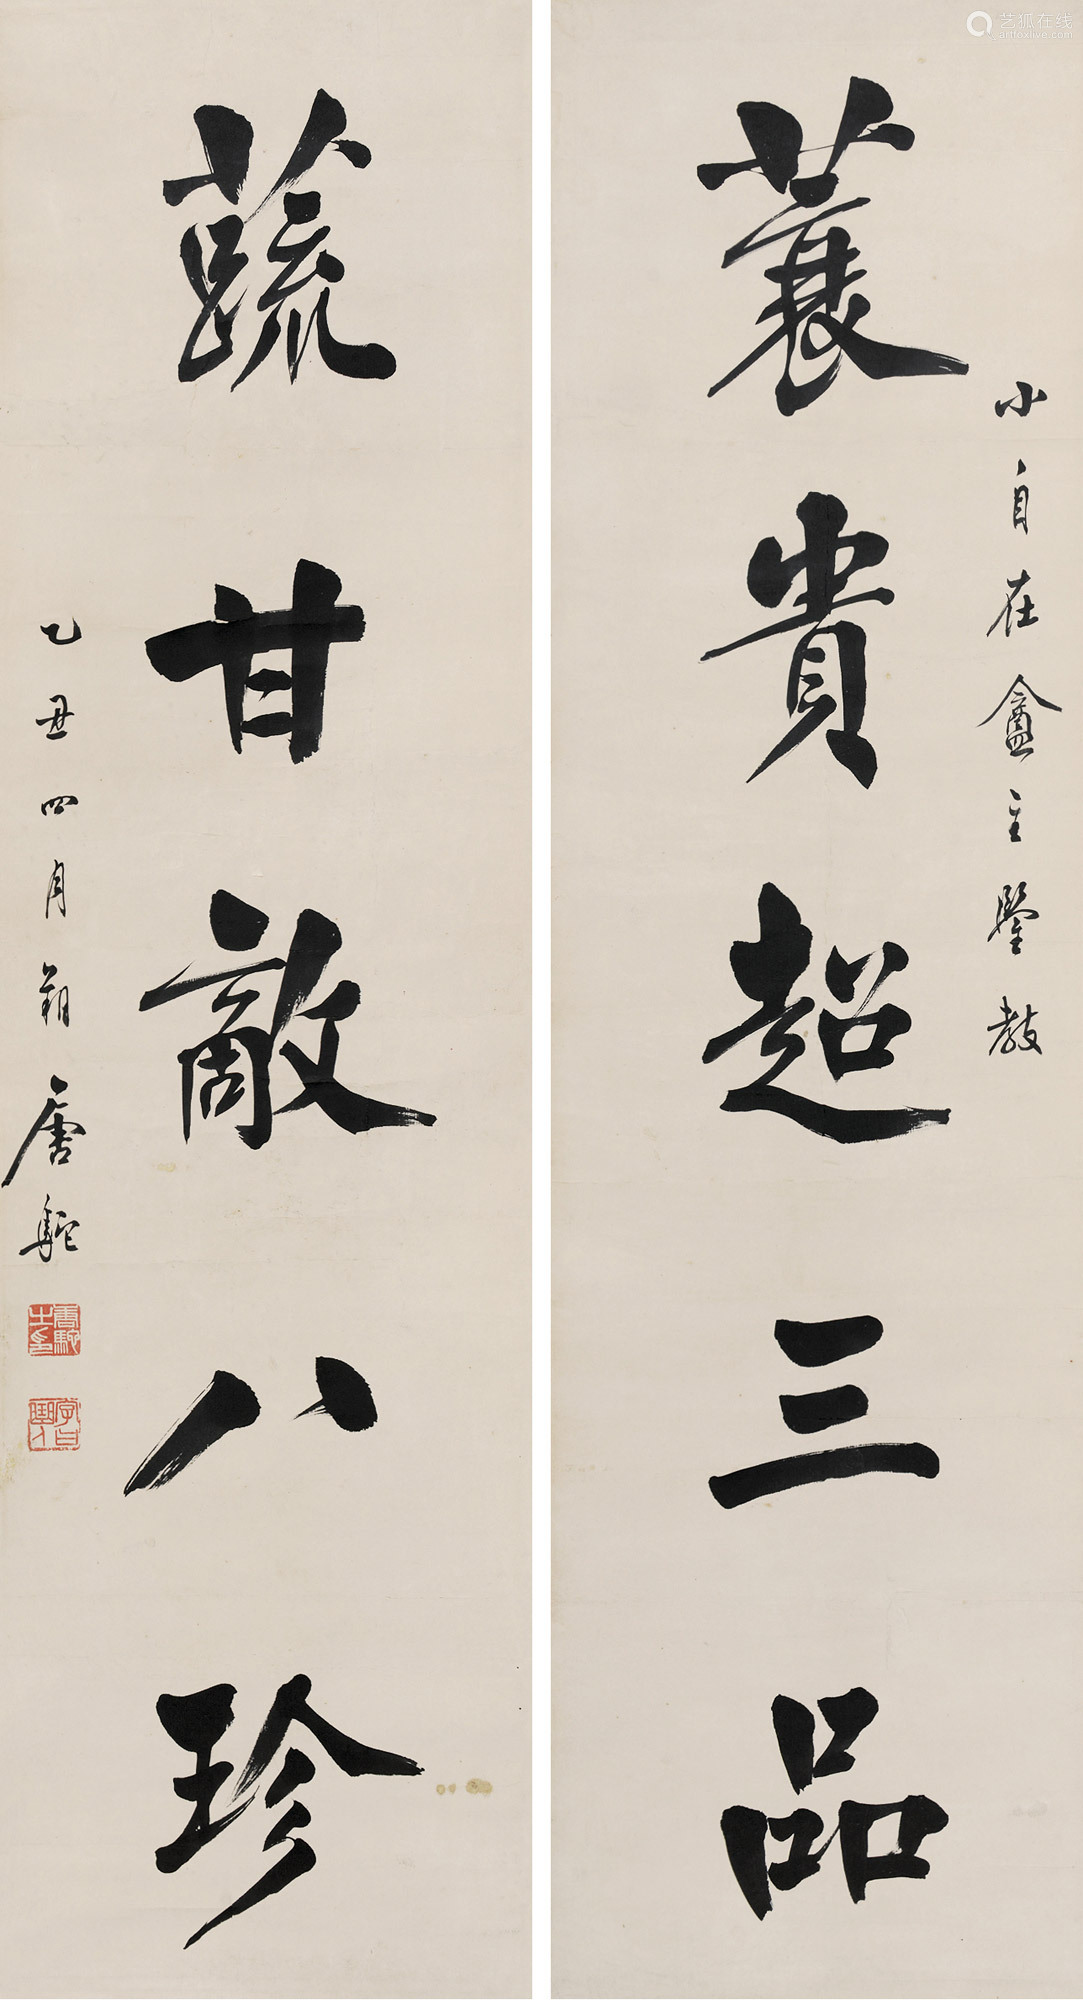 小自在盦主鑒教
蓑貴超三品
蔬甘敵八珍
乙丑四月朔
唐駝
唐駝之印
艺狐在线
artfoxlive.com